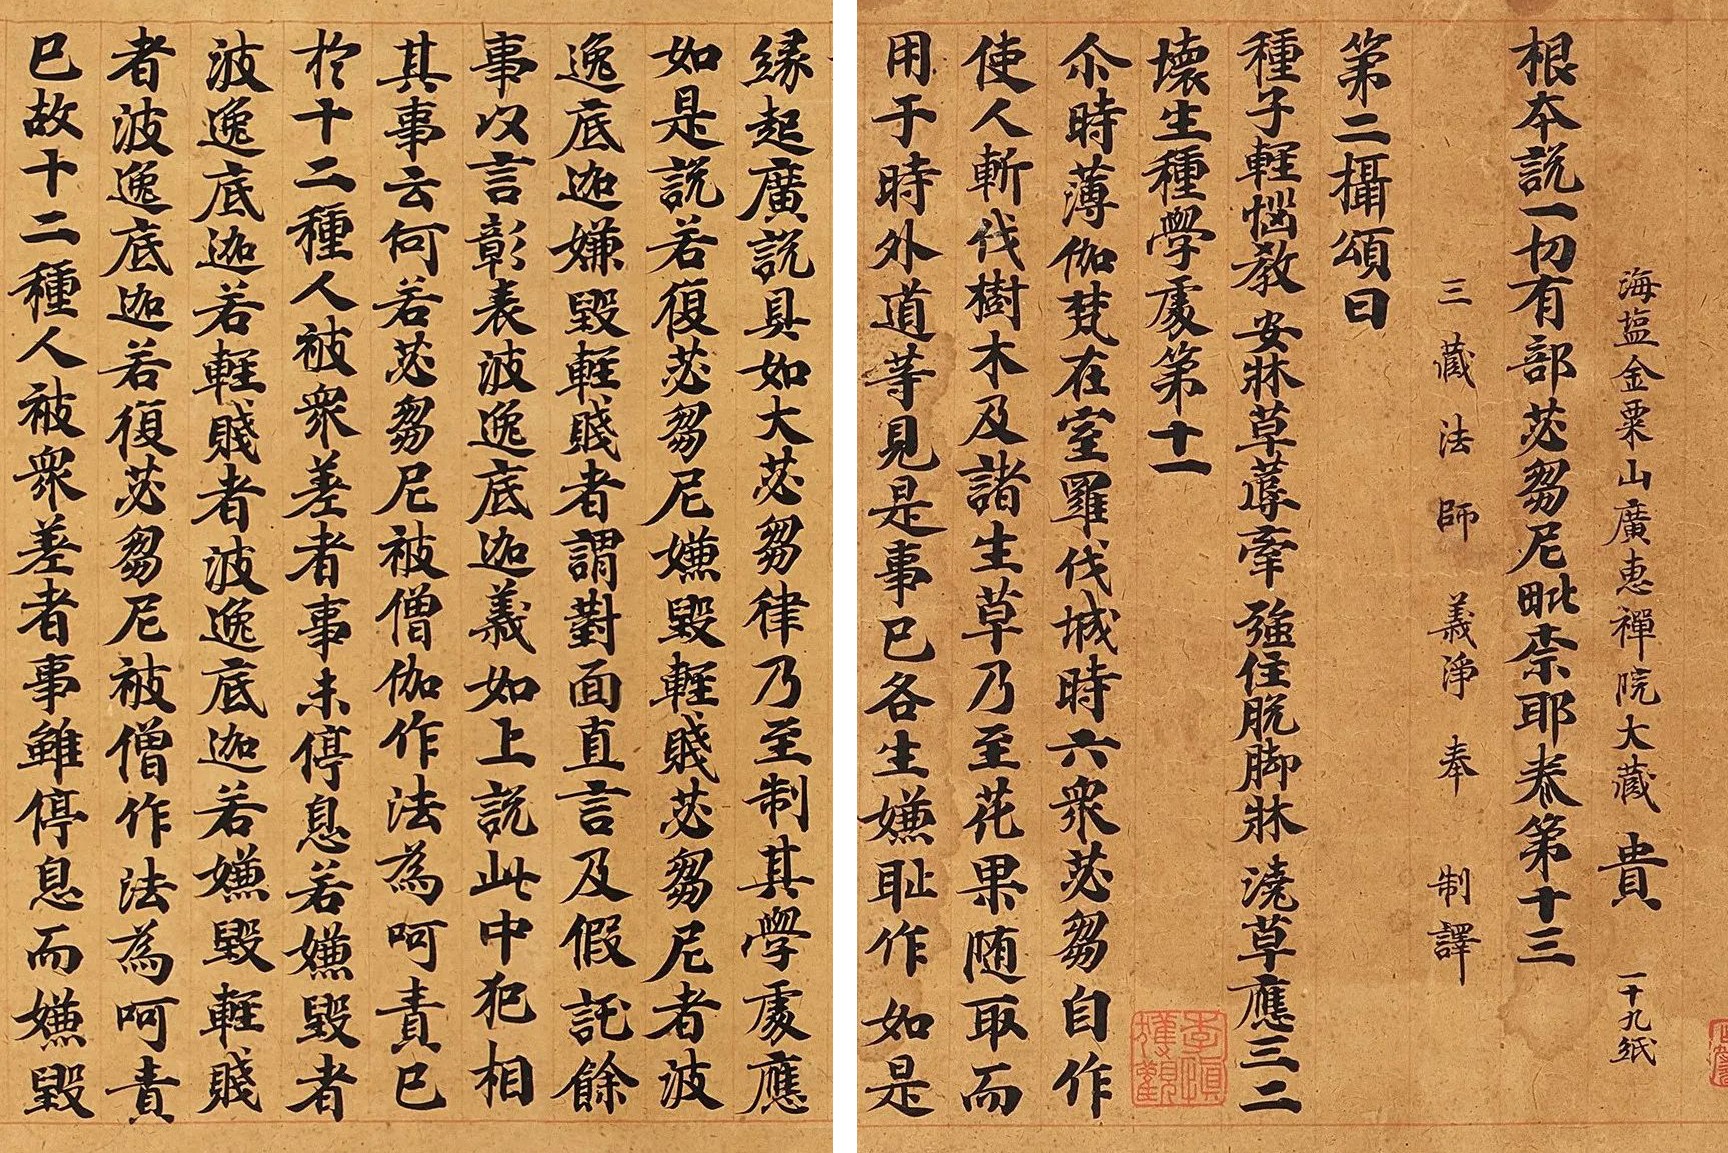 海塩金粟山廣惠禪院大藏 貴 一十九紙
根夲說一切有部苾芻尼毗柰耶卷第十三
三藏法師 義淨 奉 制譯
第二攝頌曰
種子輕惱教 安牀草蓐牽 強住脫脚牀 澆草應三二
壞生種學處第十一
尒時薄伽梵在室羅伐城時六衆苾芻自作
使人斬伐樹木及諸生草乃至花果随取而
用于時外道等見是事已各生嫌耻作如是
緣起廣說具如大苾芻律乃至制其學處應
如是說若復苾芻尼嫌毀輕賤苾芻尼者波
逸底迦嫌毀輕賤者謂對面直言及假託餘
事以言彰表波逸底迦義如上說此中犯相
其事云何若苾芻尼被僧伽作法為呵責已
於十二種人被衆差者事未停息若嫌毀者
波逸底迦若輕賤者波逸底迦若嫌毀輕賤
者波逸底迦若復苾芻尼被僧作法為呵責
已故十二種人被衆差者事雖停息而嫌毀